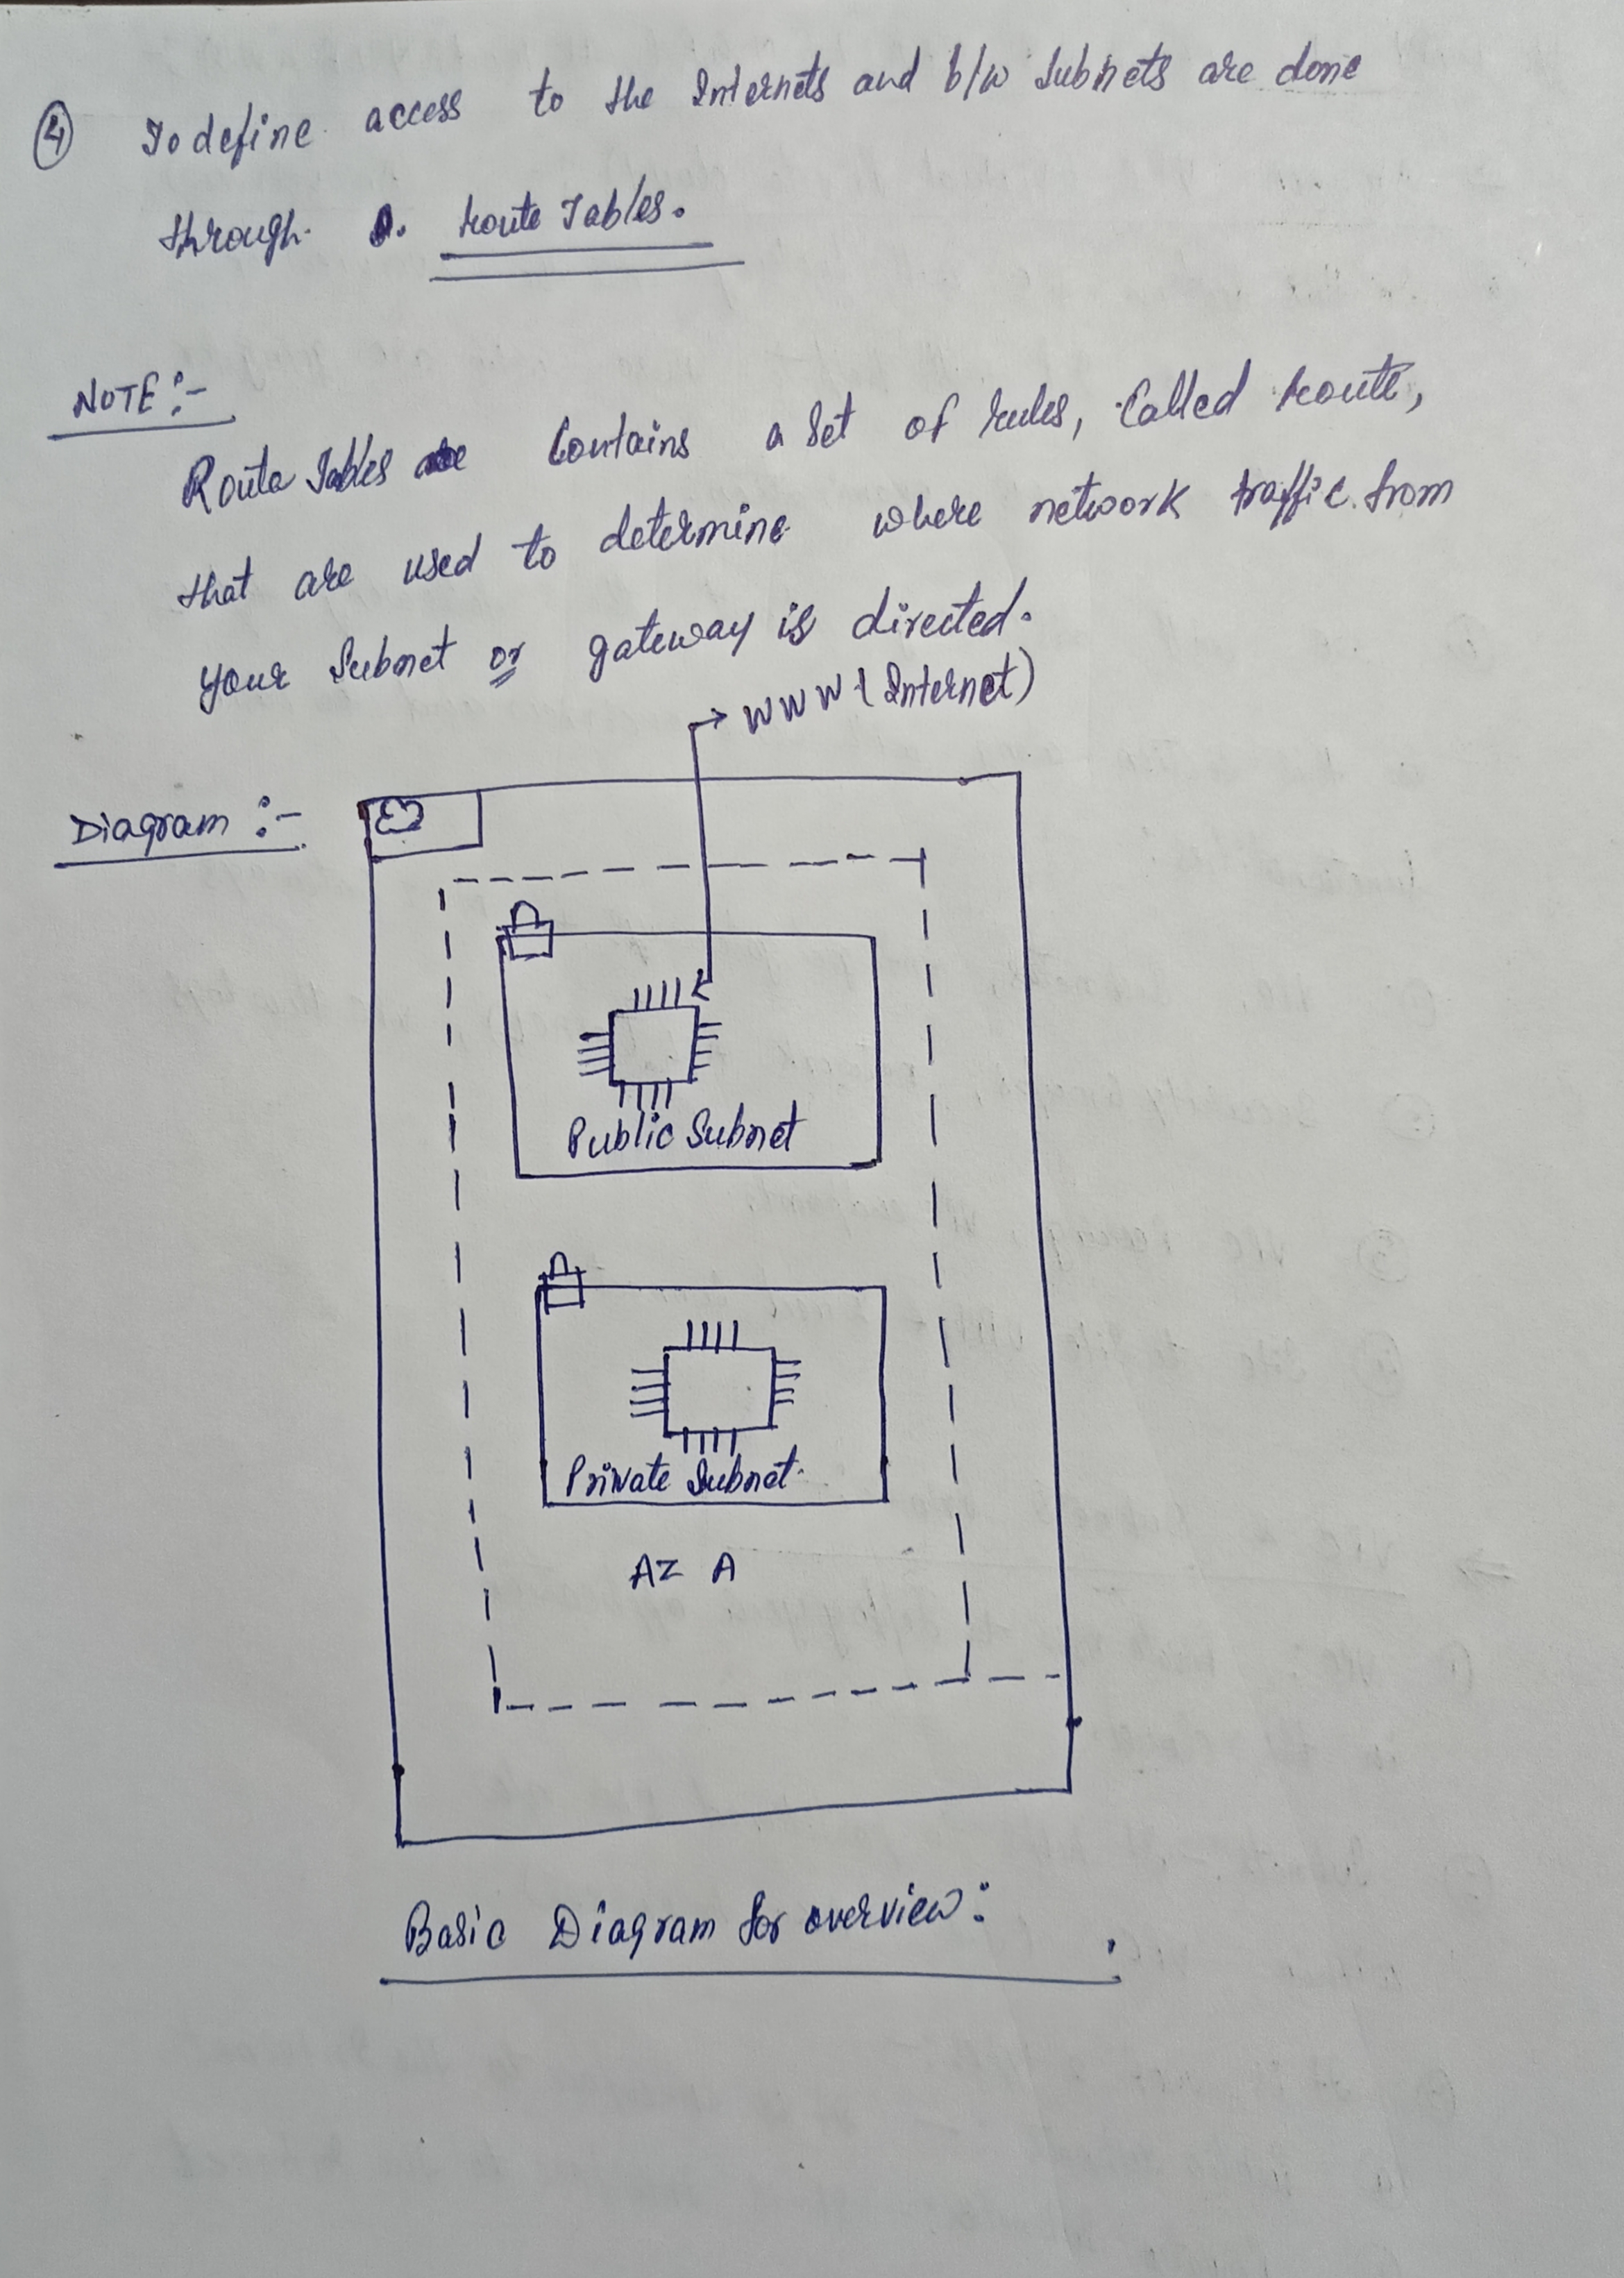 ④ To define access to the Internets and b/w Subnets are done
through Route Tables.
NOTE :-
Route Tables Contains a Set of rules, Called route,
that are used to determine where network traffic from
your Subnet or gateway is directed.
→ WWW (Internet)
Diagram :-
Public Subnet
Private Subnet
AZ A
Basic Diagram for overview :